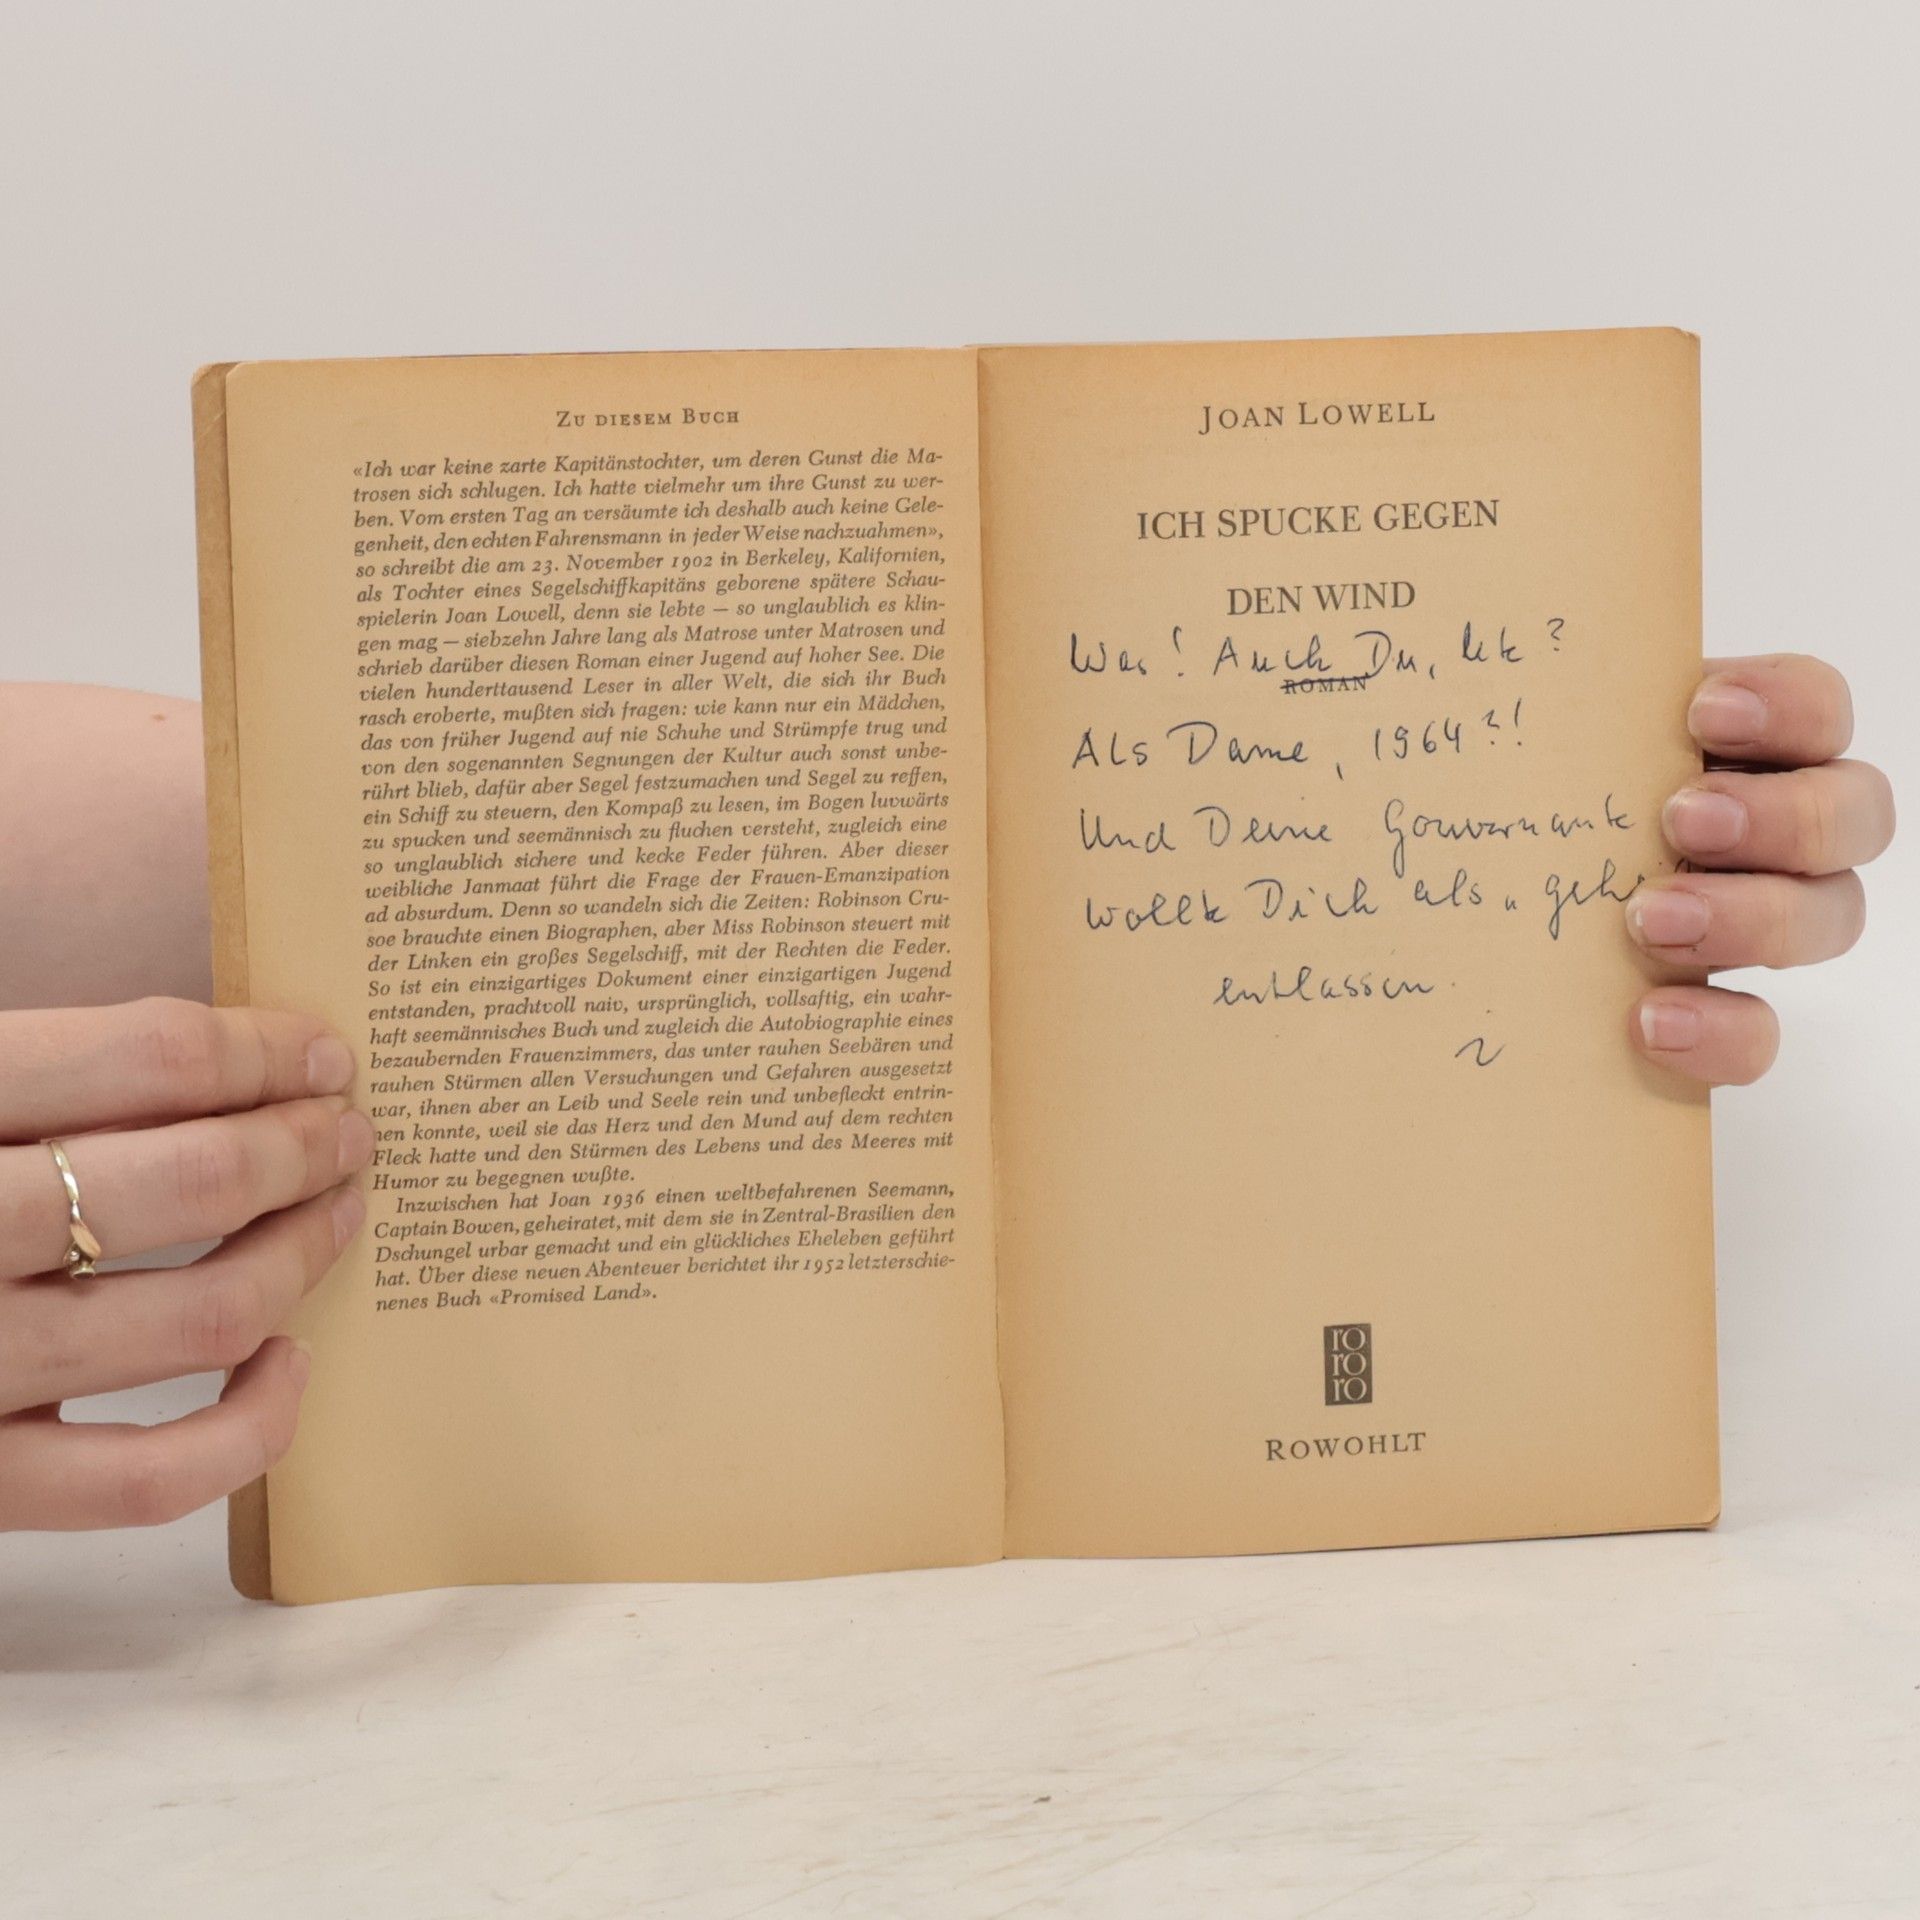 ZU DIESEM BUCH
«Ich war keine zarte Kapitänstochter, um deren Gunst die Ma-
trosen sich schlugen. Ich hatte vielmehr um ihre Gunst zu wer-
ben. Vom ersten Tag an versäumte ich deshalb auch keine Gele-
genheit, den echten Fahrensmann in jeder Weise nachzuahmen»,
so schreibt die am 23. November 1902 in Berkeley, Kalifornien,
als Tochter eines Segelschiffkapitäns geborene spätere Schau-
spielerin Joan Lowell, denn sie lebte — so unglaublich es klin-
gen mag — siebzehn Jahre lang als Matrose unter Matrosen und
schrieb darüber diesen Roman einer Jugend auf hoher See. Die
vielen hunderttausend Leser in aller Welt, die sich ihr Buch
rasch eroberte, mußten sich fragen: wie kann nur ein Mädchen,
das von früher Jugend auf nie Schuhe und Strümpfe trug und
von den sogenannten Segnungen der Kultur auch sonst unbe-
rührt blieb, dafür aber Segel festzumachen und Segel zu reffen,
ein Schiff zu steuern, den Kompaß zu lesen, im Bogen luvwärts
zu spucken und seemännisch zu fluchen versteht, zugleich eine
so unglaublich sichere und kecke Feder führen. Aber dieser
weibliche Janmaat führt die Frage der Frauen-Emanzipation
ad absurdum. Denn so wandeln sich die Zeiten: Robinson Cru-
soe brauchte einen Biographen, aber Miss Robinson steuert mit
der Linken ein großes Segelschiff, mit der Rechten die Feder.
So ist ein einzigartiges Dokument einer einzigartigen Jugend
entstanden, prachtvoll naiv, ursprünglich, vollsaftig, ein wahr-
haft seemännisches Buch und zugleich die Autobiographie eines
bezaubernden Frauenzimmers, das unter rauhen Seebären und
rauhen Stürmen allen Versuchungen und Gefahren ausgesetzt
war, ihnen aber an Leib und Seele rein und unbefleckt entrin-
nen konnte, weil sie das Herz und den Mund auf dem rechten
Fleck hatte und den Stürmen des Lebens und des Meeres mit
Humor zu begegnen wußte.
Inzwischen hat Joan 1936 einen weltbefahrenen Seemann,
Captain Bowen, geheiratet, mit dem sie in Zentral-Brasilien den
Dschungel urbar gemacht und ein glückliches Eheleben geführt
hat. Über diese neuen Abenteuer berichtet ihr 1952 letzterschie-
nenes Buch «Promised Land».
JOAN LOWELL
ICH SPUCKE GEGEN
DEN WIND
Was! Auch Du, ?
ROMAN
Als Dame, 1964?!
Und Deine Gouvernante
wollte Dich als „
entlassen.
ro
ro
ro
ROWOHLT